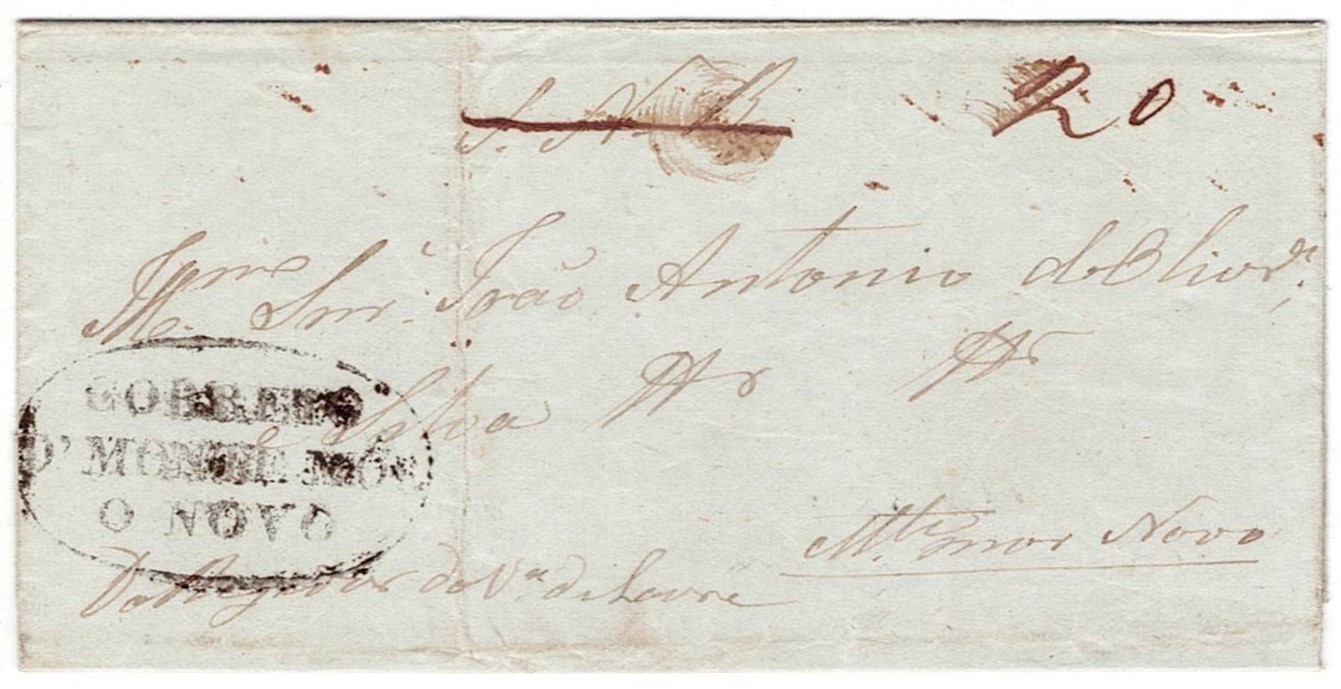 S. N. R.
20
Illmo. Snr. João Antonio de Olivra.
e Silva
CORREIO
D' MONTE MÓR
O NOVO
Mte. mor Novo
Do Regedor da Va. de Lavre